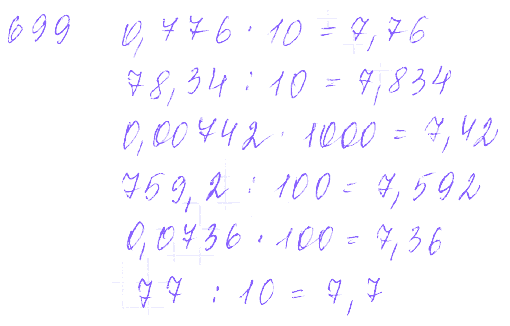 699 0,776 · 10 = 7,76
78,34 : 10 = 7,834
0,00742 · 1000 = 7,42
759,2 : 100 = 7,592
0,0736 · 100 = 7,36
77 : 10 = 7,7